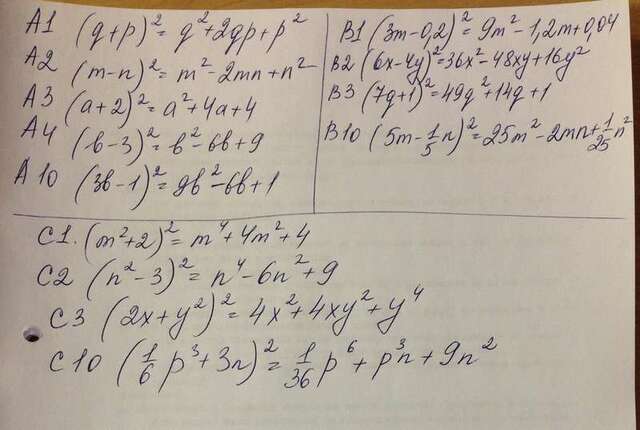 A1 (g+p)²= g²+2gp+p²
A2 (m-n)²= m²-2mn+n²
A3 (a+2)²= a²+4a+4
A4 (b-3)²= b²-6b+9
A10 (3b-1)²= 9b²-6b+1
B1 (3m-0,2)²= 9m²-1,2m+0,04
B2 (6x-4y)²=36x²-48xy+16y²
B3 (7g+1)²=49g²+14g+1
B10 (5m-1/5n)²=25m²-2mn+1/25n²
C1. (m²+2)²= m⁴+4m²+4
C2 (n²-3)²= n⁴-6n²+9
C3 (2x+y²)²= 4x²+4xy²+y⁴
C10 (1/6p³+3n)²= 1/36p⁶+p³n+9n²